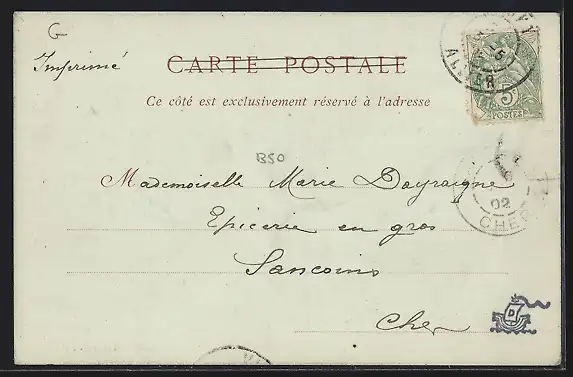 G
Imprimé
CARTE POSTALE
Ce côté est exclusivement réservé à l'adresse
B50
Mademoiselle Marie Dayraigne
Epicerie en gros
Sancoins
Cher
5c
POSTES
ALLIER
02
CHER
D